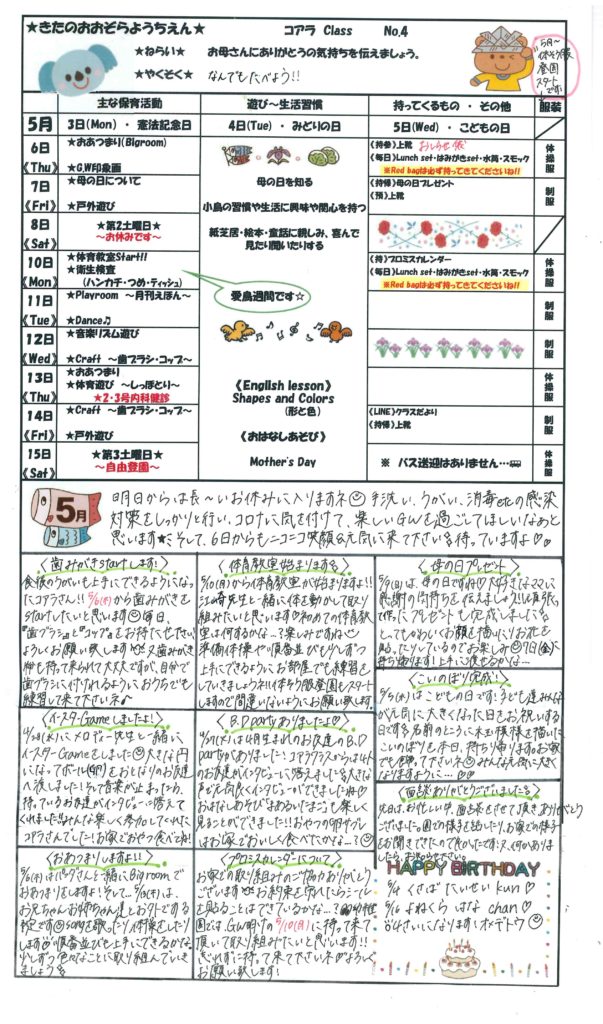 ★きたのおおぞらようちえん★ コアラ Class No.4
★ねらい☆ お母さんにありがとうの気持ちを伝えましょう。
★やくそく☆ なんでもたべよう!!
5月〜
体そう服
登園
スタート
です
主な保育活動 遊び〜生活習慣 持ってくるもの・その他 服装
5月 3日(Mon)・憲法記念日 4日(Tue)・みどりの日 5日(Wed)・こどもの日
6日
《Thu》
★おあつまり(Bigroom)
★G.W印象画
(持参)上靴 おしらせ袋
(毎日)Lunch set・はみがきset・水筒・スモック
※Red bagは必ず持ってきてくださいね!!
体操服
7日
《Fri》
★母の日について
★戸外遊び
母の日を知る
小鳥の習慣や生活に興味や関心を持つ
(持帰)母の日プレゼント
(預)上靴
制服
8日
《Sat》
★第2土曜日★
〜お休みです〜
紙芝居・絵本・童話に親しみ、喜んで
見たり聞いたりする
10日
《Mon》
★体育教室Start!!
★衛生検査
(ハンカチ・つめ・ティッシュ)
愛鳥週間です☆
(持)プロミスカレンダー
(毎日)Lunch set・はみがきset・水筒・スモック
※Red bagは必ず持ってきてくださいね!!
体操服
11日
《Tue》
★Playroom 〜月刊えほん〜
★Dance♫
制服
12日
《Wed》
★音楽リズム遊び
★Craft 〜歯ブラシ・コップ〜
制服
13日
《Thu》
★おあつまり
★体育遊び 〜しっぽとり〜
★2・3号内科健診
《English lesson》
Shapes and Colors
(形と色)
体操服
14日
《Fri》
★Craft 〜歯ブラシ・コップ〜
★戸外遊び
《おはなしあそび》
(LINE)クラスだより
(持帰)上靴
制服
15日
《Sat》
★第3土曜日★
〜自由登園〜
Mother's Day
※ バス送迎はありません…
体操服
5月
明日からは長〜いお休みに入りますネ 手洗い、うがい、消毒etcの感染
対策をしっかりと行い、コロナに気を付けて、楽しいGWを過ごしてほしいなあと
思います★そして、6日からもニコニコ笑顔&元気に来て下さいネ 待っていますよ♡♡
〈歯みがきstartします!〉
食後のうがいも上手にできるようになっ
たコアラさん!! 5/6(木)から歯みがきを
startしたいと思います 毎日、
"歯ブラシ"と"コップ"をお持たせ下さい
ますようお願い致します
〈体育教室始まります〉
5/10(月)から体育教室が始まりますよ!!
江﨑先生と一緒に体を動かして取り
組みたいと思います 初めての体育教
室は何するかな…?楽しみですね
準備体操や順番並びもひとつずつ
上手にできるように、お部屋でも練習を
していきましょうネ!! 体そう服登園もスタート
しますので間違いないようにお願い致します
〈母の日プレゼント〉
5/9(日)は、母の日ですね♡大好きなママに
感謝の気持ちを伝えましょう!!
〈こいのぼり完成!〉
5/5(水)はこどもの日です!子ども達みんな
が元気に大きくなった日をお祝いする
日です
〈イースターGameしましたよ!〉
4/28(水)にメロディー先生と一緒に
イースターGameをしました 大きな円
になってボール(卵)をおとなりのお友達
へ渡しました!そして音楽が止まったら、
持っているお友達がインタビューに答えて
くれました みんな楽しく参加してくれた
コアラさんでした!お家でおやつ食べてね!
〈B.D partyありましたよ〉
4/27(火)は4月生まれのお友達のB.D
partyがありました!コアラクラスからは4人
のお友達がインタビューに答えました 大きな
声で元気良くインタビューができましたね♡
おはなしあそびはあおむしたいこも楽しく
見ることができました!!おやつの卵サブレ
はお家でおいしく食べたかな〜?
〈面談ありがとうございました〉
先日は、お忙しい中、面談をさせて頂きありがとう
ございました。園での様子を話したり、お家での様子
をお聞きできたので良かったです
〈おあつまりしますよ!!〉
5/6(木)はパンダさんと一緒にBigroomで
おあつまりをしますよ!そして、5/13(木)は、
お兄ちゃんお姉ちゃん達とお外でする
予定です songを歌ったり体操をしたり
します 順番並びも上手にできるかな
少しずつ色々なことに取り組んでいき
ましょうネ
〈プロミスカレンダーについて〉
お家での取り組みのご協力ありがとう
ございます お約束を守れたらシール
を貼ることはできているかな…? 幼稚
園では、GW明けの5/10(月)に持って来て
頂いて取り組みたいと思います!!
忘れずに持って来て下さいネ よろしく
お願い致します!
HAPPY BIRTHDAY
5/4 くさば たいせい kun♡
5/16 よねくら はな chan♡
4さいになります!オメデトウ